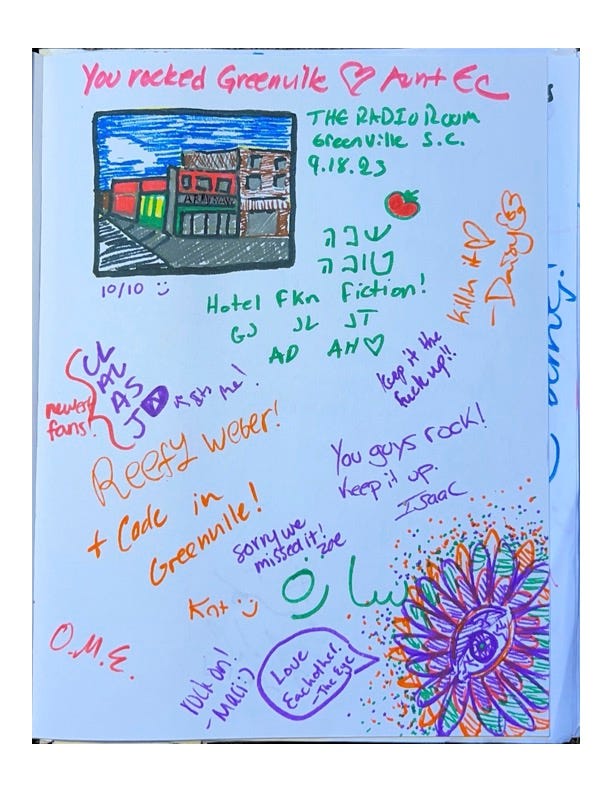 You rocked Greenville ♡ Aunt EC
THE RADIO Room
Greenville S.C.
9.18.23
10/10 :)
שנה
טובה
Hotel Fkn Fiction!
GJ JL JT
AD AH♡
Killn it ♡
-Daisy
newer
fans!
CL
AL
AS
JD
me!
Keep it the
fuck up!!
Reefy Weber!
+ Code in
Greenville!
You guys rock!
Keep it up.
Isaac
Sorry we
missed it!
Zoe
Knt :)
O.M.E.
rock on!
-Maci :)
Love
Eachother.
-The Eye